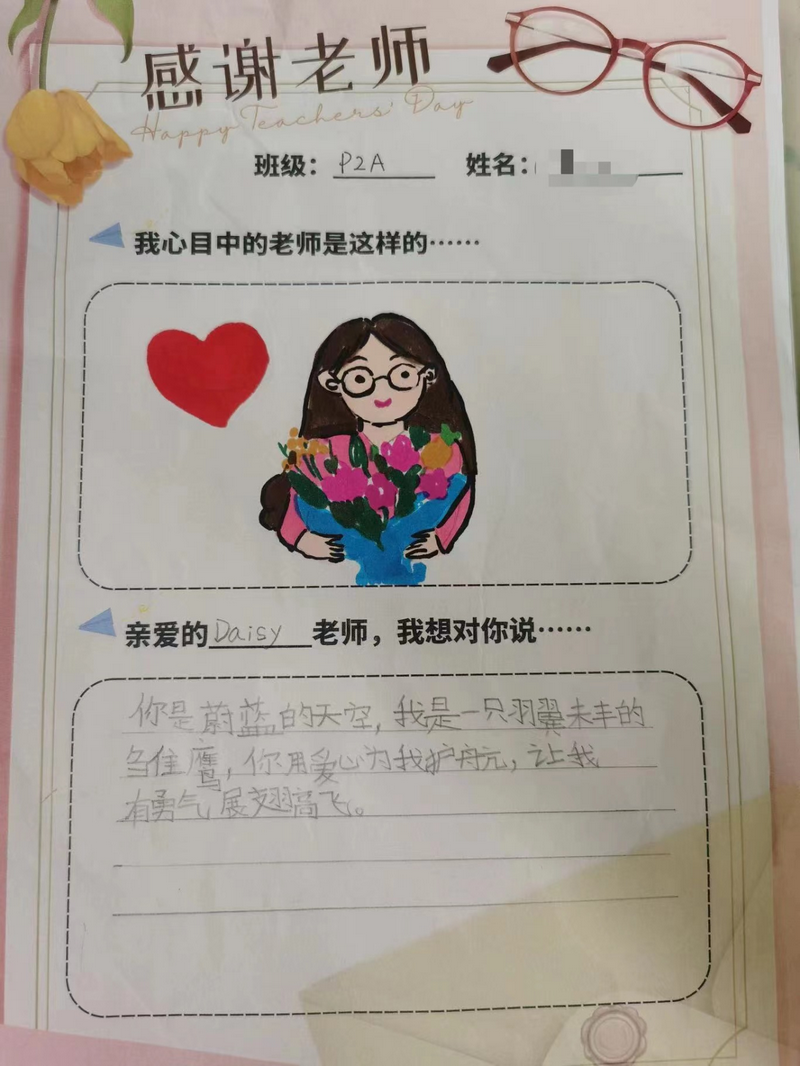 感谢老师
Happy Teachers' Day
班级：P2A 姓名：
我心目中的老师是这样的……
亲爱的Daisy老师，我想对你说……
你是蔚蓝的天空，我是一只羽翼未丰的
刍隹鹰，你用爱心为我护舟元，让我
有勇气展翅高飞。